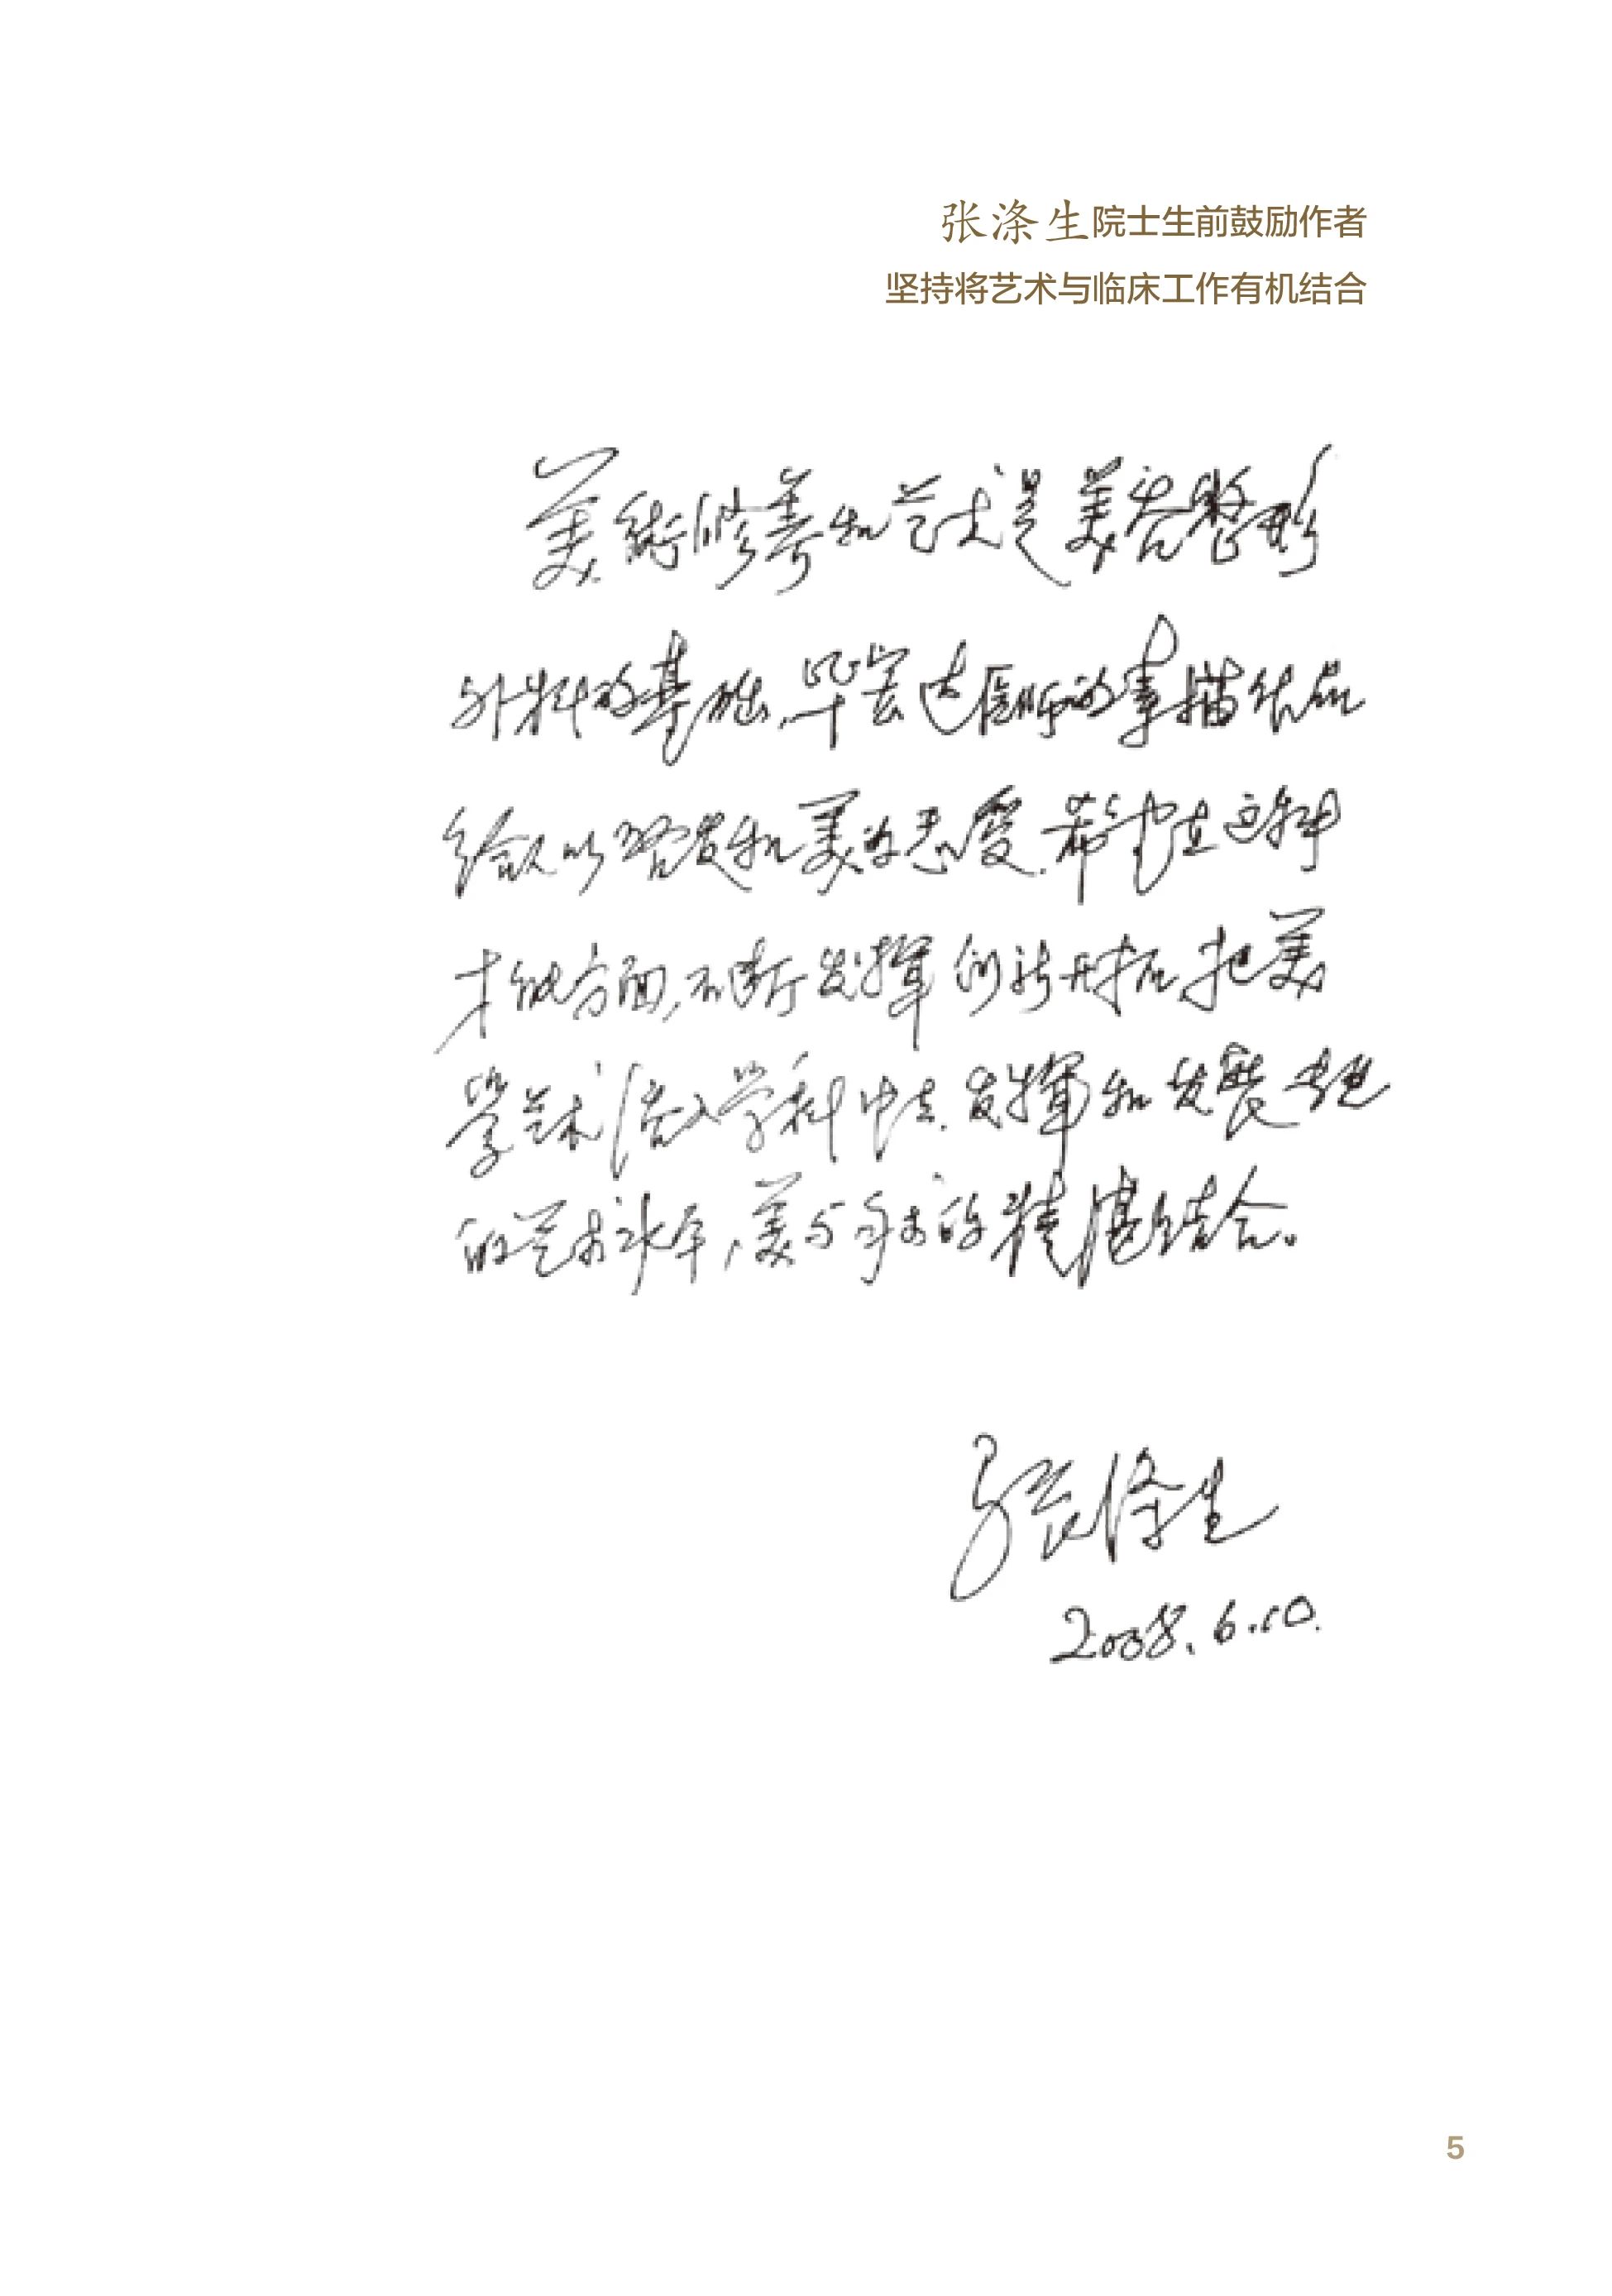 张涤生院士生前鼓励作者
坚持将艺术与临床工作有机结合
美術修养和艺术是美容整形
外科的基础,毕尝达医师的素描作品
给人以启发和美的感受.希望在这种
才能方面,不断发挥创新开拓,把美
学艺术溶入学科中去.发挥和发展
的艺术水平,美与手术的精湛结合。
張涤生
2008.6.10.
5